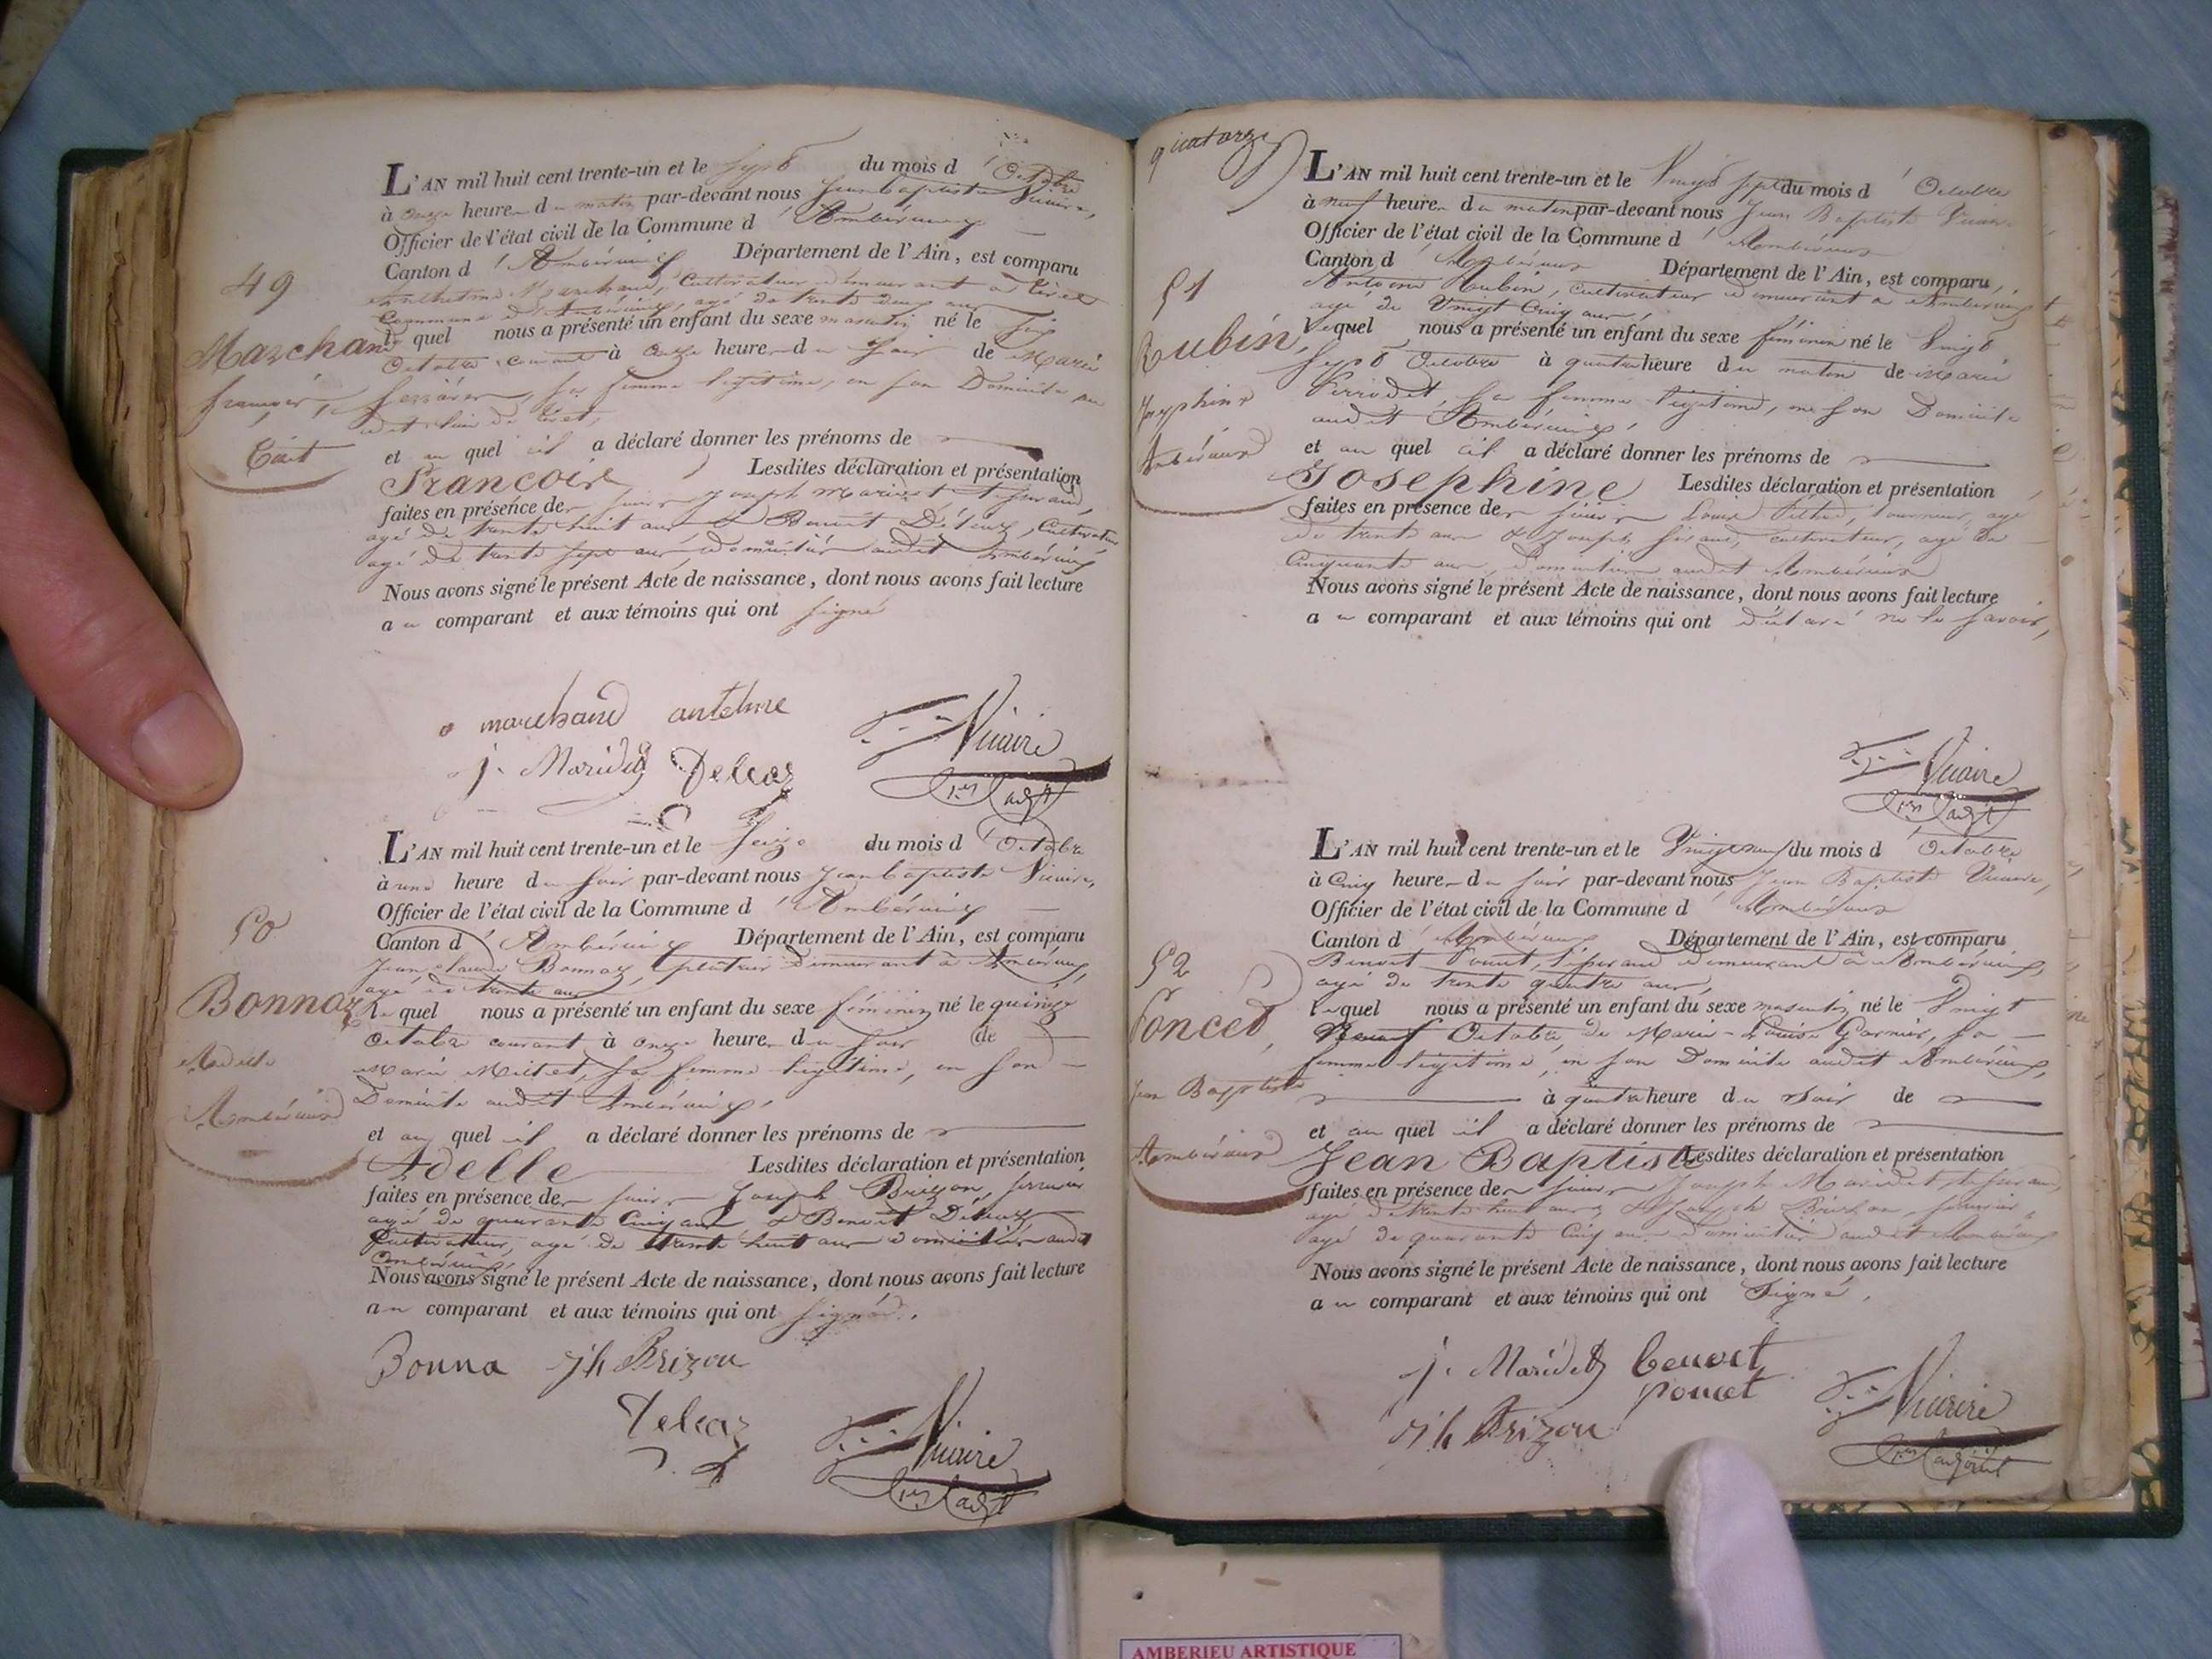 L'AN mil huit cent trente-un et le sept du mois d' Octobre
à onze heures du matin par-devant nous Jean Baptiste Vicaire,
Officier de l'état civil de la Commune d' Ambérieux
Canton d' Ambérieux Département de l'Ain, est comparu
Anthelme Marchand, Cultivateur demeurant à Tiret
Commune d'Ambérieux, agé de trente deux ans
49
Marchand
françois
Tiret
lequel nous a présenté un enfant du sexe masculin né le
Octobre courant à onze heures du soir de Marie
sa femme légitime, en son Domicile au
dit lieu de Tiret,
et au quel il a déclaré donner les prénoms de
François Lesdites déclaration et présentation
faites en présence des sieurs Joseph Maridet tisserand,
agé de trente huit ans & Benoit Cultivateur
agé de trente sept ans, domiciliés audit Ambérieux
Nous avons signé le présent Acte de naissance, dont nous avons fait lecture
au comparant et aux témoins qui ont signé
marchand antelme
j. Maridet Vicaire
1er adjt
L'AN mil huit cent trente-un et le seize du mois d' Octobre
à une heure du soir par-devant nous Jean Baptiste Vicaire,
Officier de l'état civil de la Commune d' Ambérieux
Canton d' Ambérieux Département de l'Ain, est comparu
Jean Claude Bonnaz, plâtrier demeurant à Ambérieux,
agé de trente ans
50
Bonnaz
Adelle
Ambérieux
lequel nous a présenté un enfant du sexe féminin né le quinze
Octobre courant à onze heures du soir de
Marie Milliet, sa femme légitime, en son
Domicile audit Ambérieux,
et au quel il a déclaré donner les prénoms de
Adelle Lesdites déclaration et présentation
faites en présence des sieurs Joseph Brizon, serrurier
agé de quarante Cinq ans, & Benoit
Cultivateur, agé de trente huit ans domiciliés audit
Ambérieux,
Nous avons signé le présent Acte de naissance, dont nous avons fait lecture
au comparant et aux témoins qui ont signé.
Bonna Jh Brizon
Vicaire
1er adjt
quatorze
L'AN mil huit cent trente-un et le Vingt sept du mois d' Octobre
à neuf heures du matin par-devant nous Jean Baptiste Vicaire
Officier de l'état civil de la Commune d' Ambérieux
Canton d' Ambérieux Département de l'Ain, est comparu
Antoine Rubin, cultivateur demeurant à Ambérieux
agé de Vingt Cinq ans,
51
Rubin,
Josephine
Ambérieux
lequel nous a présenté un enfant du sexe féminin né le Vingt
Sept Octobre à quatre heure du matin de Marie
Perrodet, sa femme légitime, en son Domicile
audit Ambérieux,
et au quel il a déclaré donner les prénoms de
Josephine Lesdites déclaration et présentation
faites en présence des sieurs Louis tourneur, agé
de trente ans & Joseph cultivateur, agé de
Cinquante ans, domiciliés audit Ambérieux
Nous avons signé le présent Acte de naissance, dont nous avons fait lecture
au comparant et aux témoins qui ont déclaré ne le savoir,
Vicaire
1er adjt
L'AN mil huit cent trente-un et le Vingt neuf du mois d' Octobre
à Cinq heures du soir par-devant nous Jean Baptiste Vicaire,
Officier de l'état civil de la Commune d' Ambérieux
Canton d' Ambérieux Département de l'Ain, est comparu
Benoit Poncet, tisserand demeurant à Ambérieux,
agé de trente quatre ans,
52
Poncet,
Jean Baptiste
Ambérieux
lequel nous a présenté un enfant du sexe masculin né le Vingt
Neuf Octobre, de Marie-Louise Garnier, sa
femme légitime, en son Domicile audit Ambérieux,
à quatre heure du soir de
et au quel il a déclaré donner les prénoms de
Jean Baptiste Lesdites déclaration et présentation
faites en présence des sieurs Joseph Maridet, tisserand,
agé de trente huit ans & Joseph Brizon, serrurier,
agé de quarante Cinq ans domiciliés audit Ambérieux
Nous avons signé le présent Acte de naissance, dont nous avons fait lecture
au comparant et aux témoins qui ont Signé.
j. Maridet benoit
poncet
Jh Brizon
Vicaire
1er adjoint
AMBERIEU ARTISTIQUE